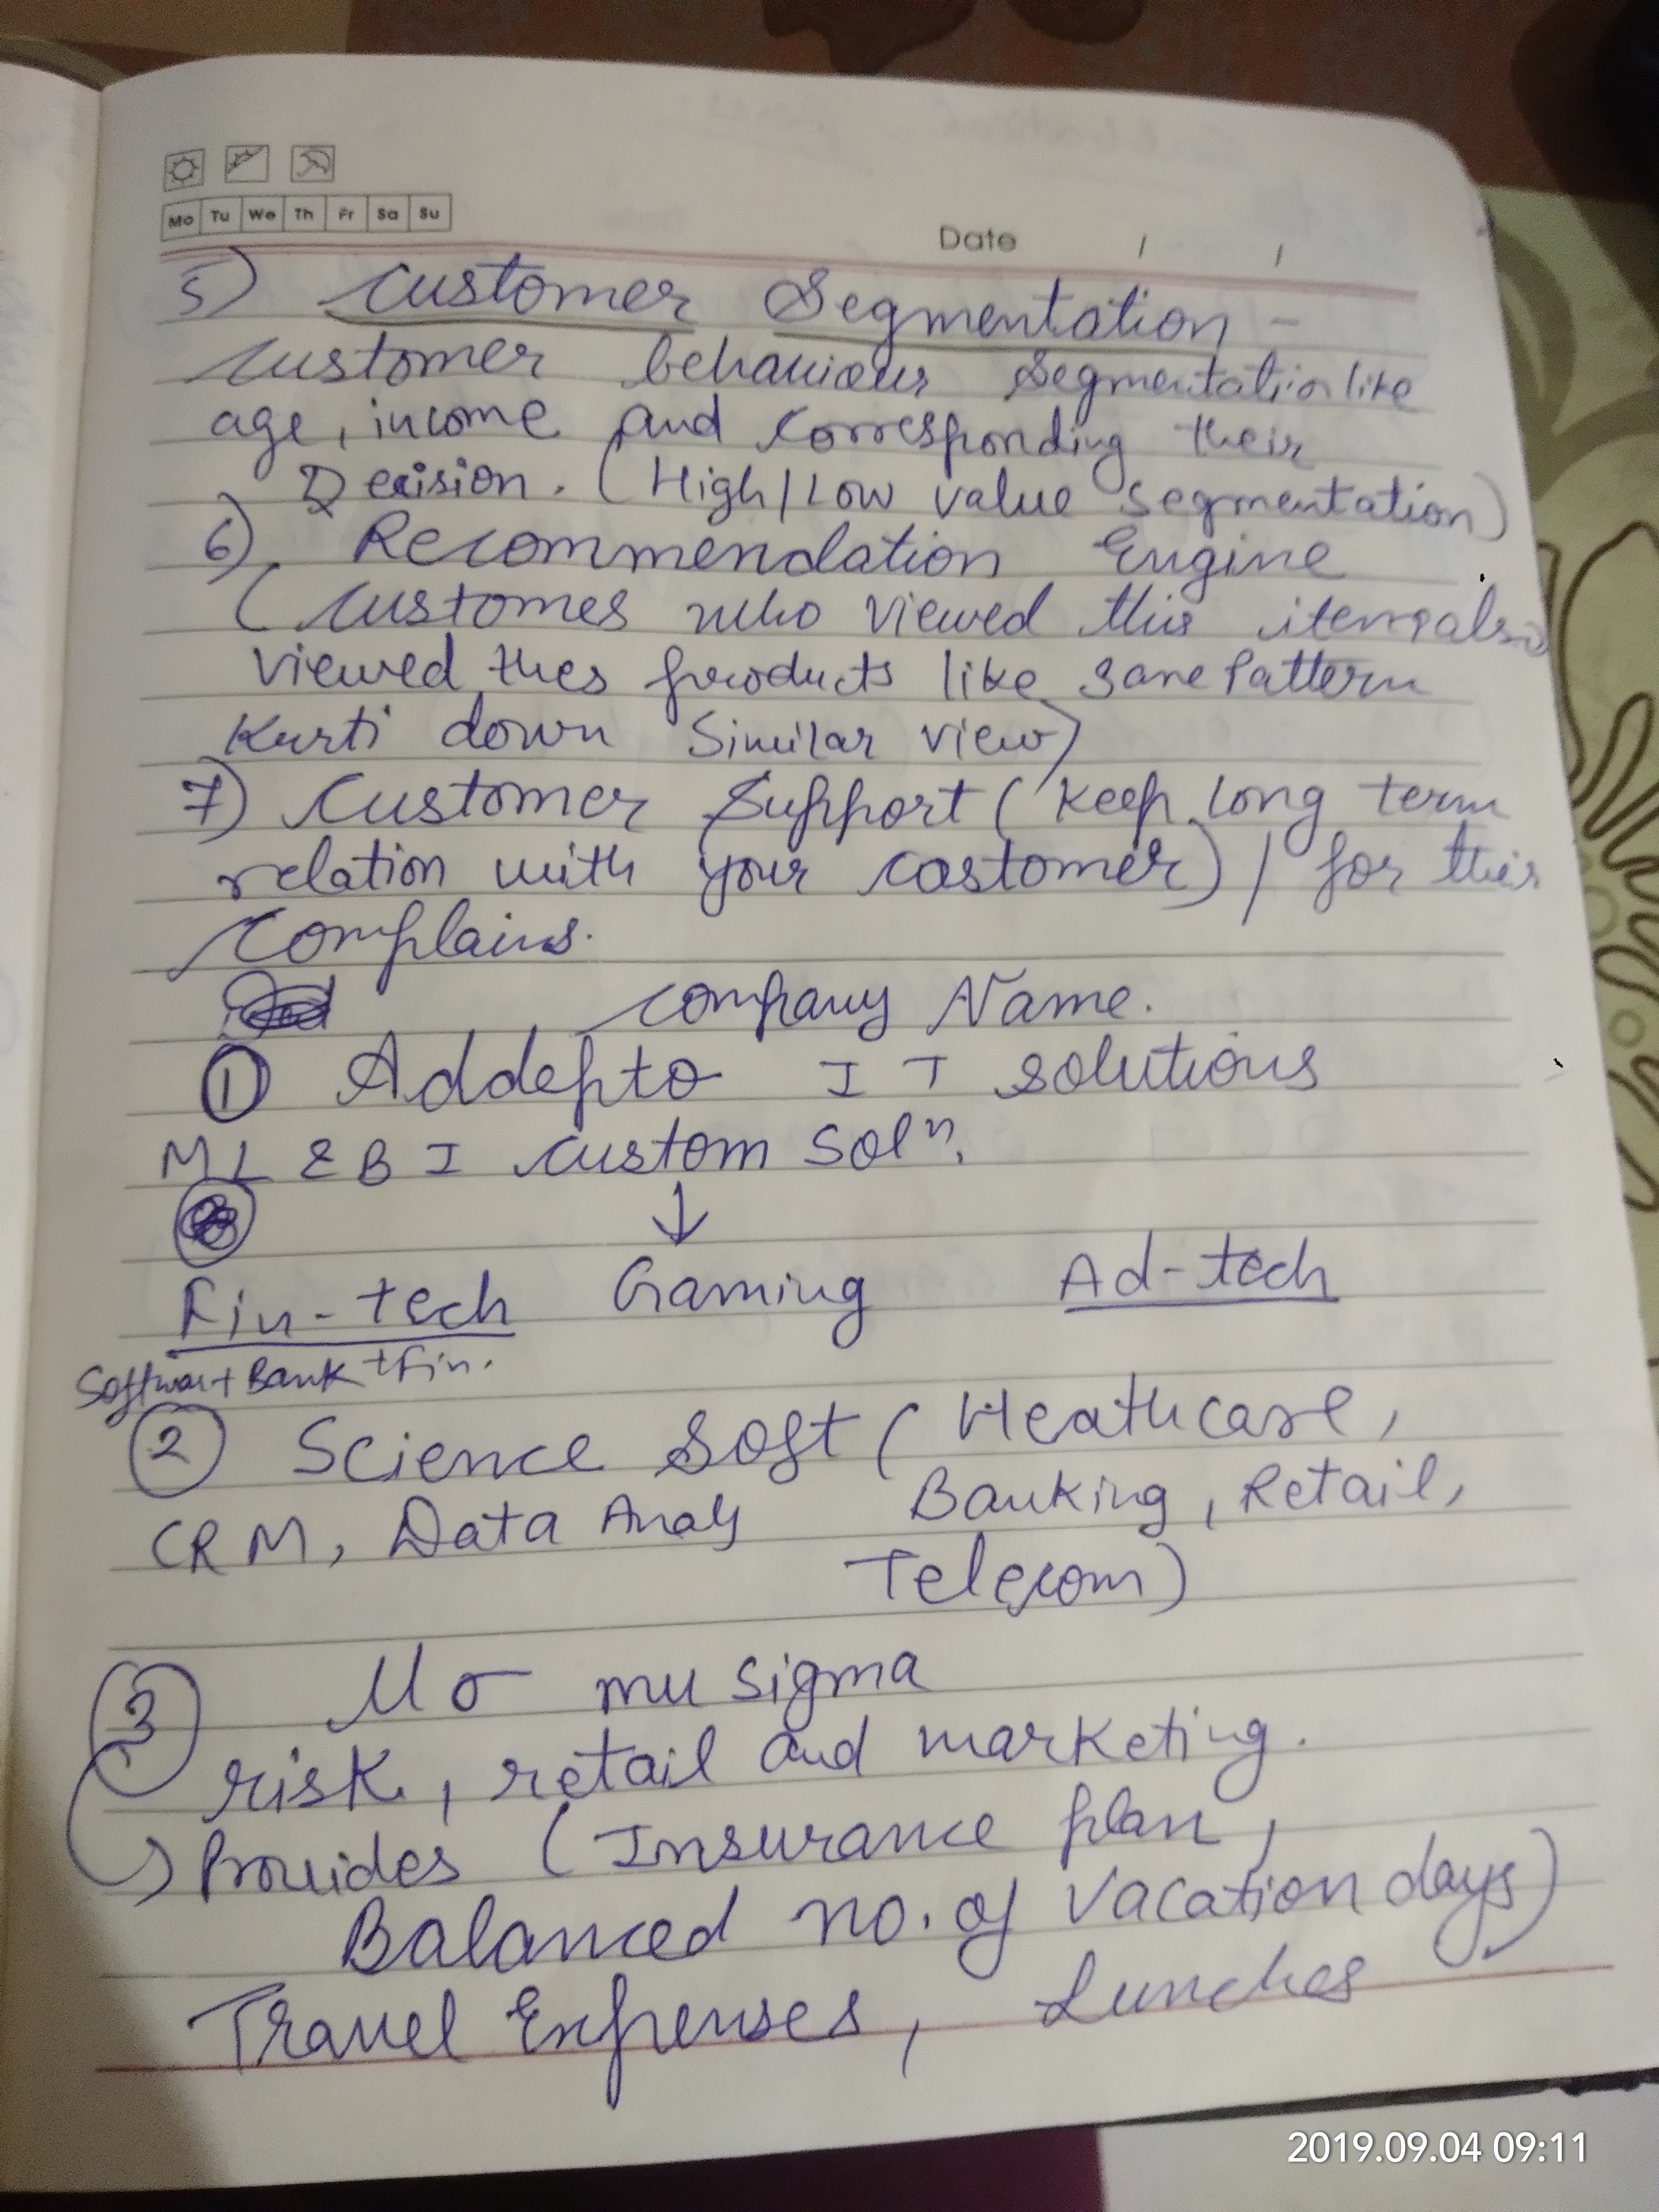 Mo Tu We Th Fr Sa Su
Date / /
5) Customer Segmentation -
Customer behaviour Segmentation like
age, income and corresponding their
Decision. (High/Low value segmentation)
6) Recommendation Engine
(Customes who viewed this items also
viewed thes products like same Pattern
Kurti down Similar view)
7) Customer Support (Keep long term
relation with your costomer) / for their
Complains.
Company Name.
1 Addepto IT solutions
ML & BI custom Solⁿ.
↓
Fin-tech Gaming Ad-tech
Softwar+Bank+Fin.
2 Science Soft (Heathcare,
CRM, Data Analy Banking, Retail,
Telecom)
3 Mσ mu sigma
risk, retail and marketing.
→ Provides (Insurance plan,
Balanced no. of vacation days)
Travel Expenses, Lunches
2019.09.04 09:11